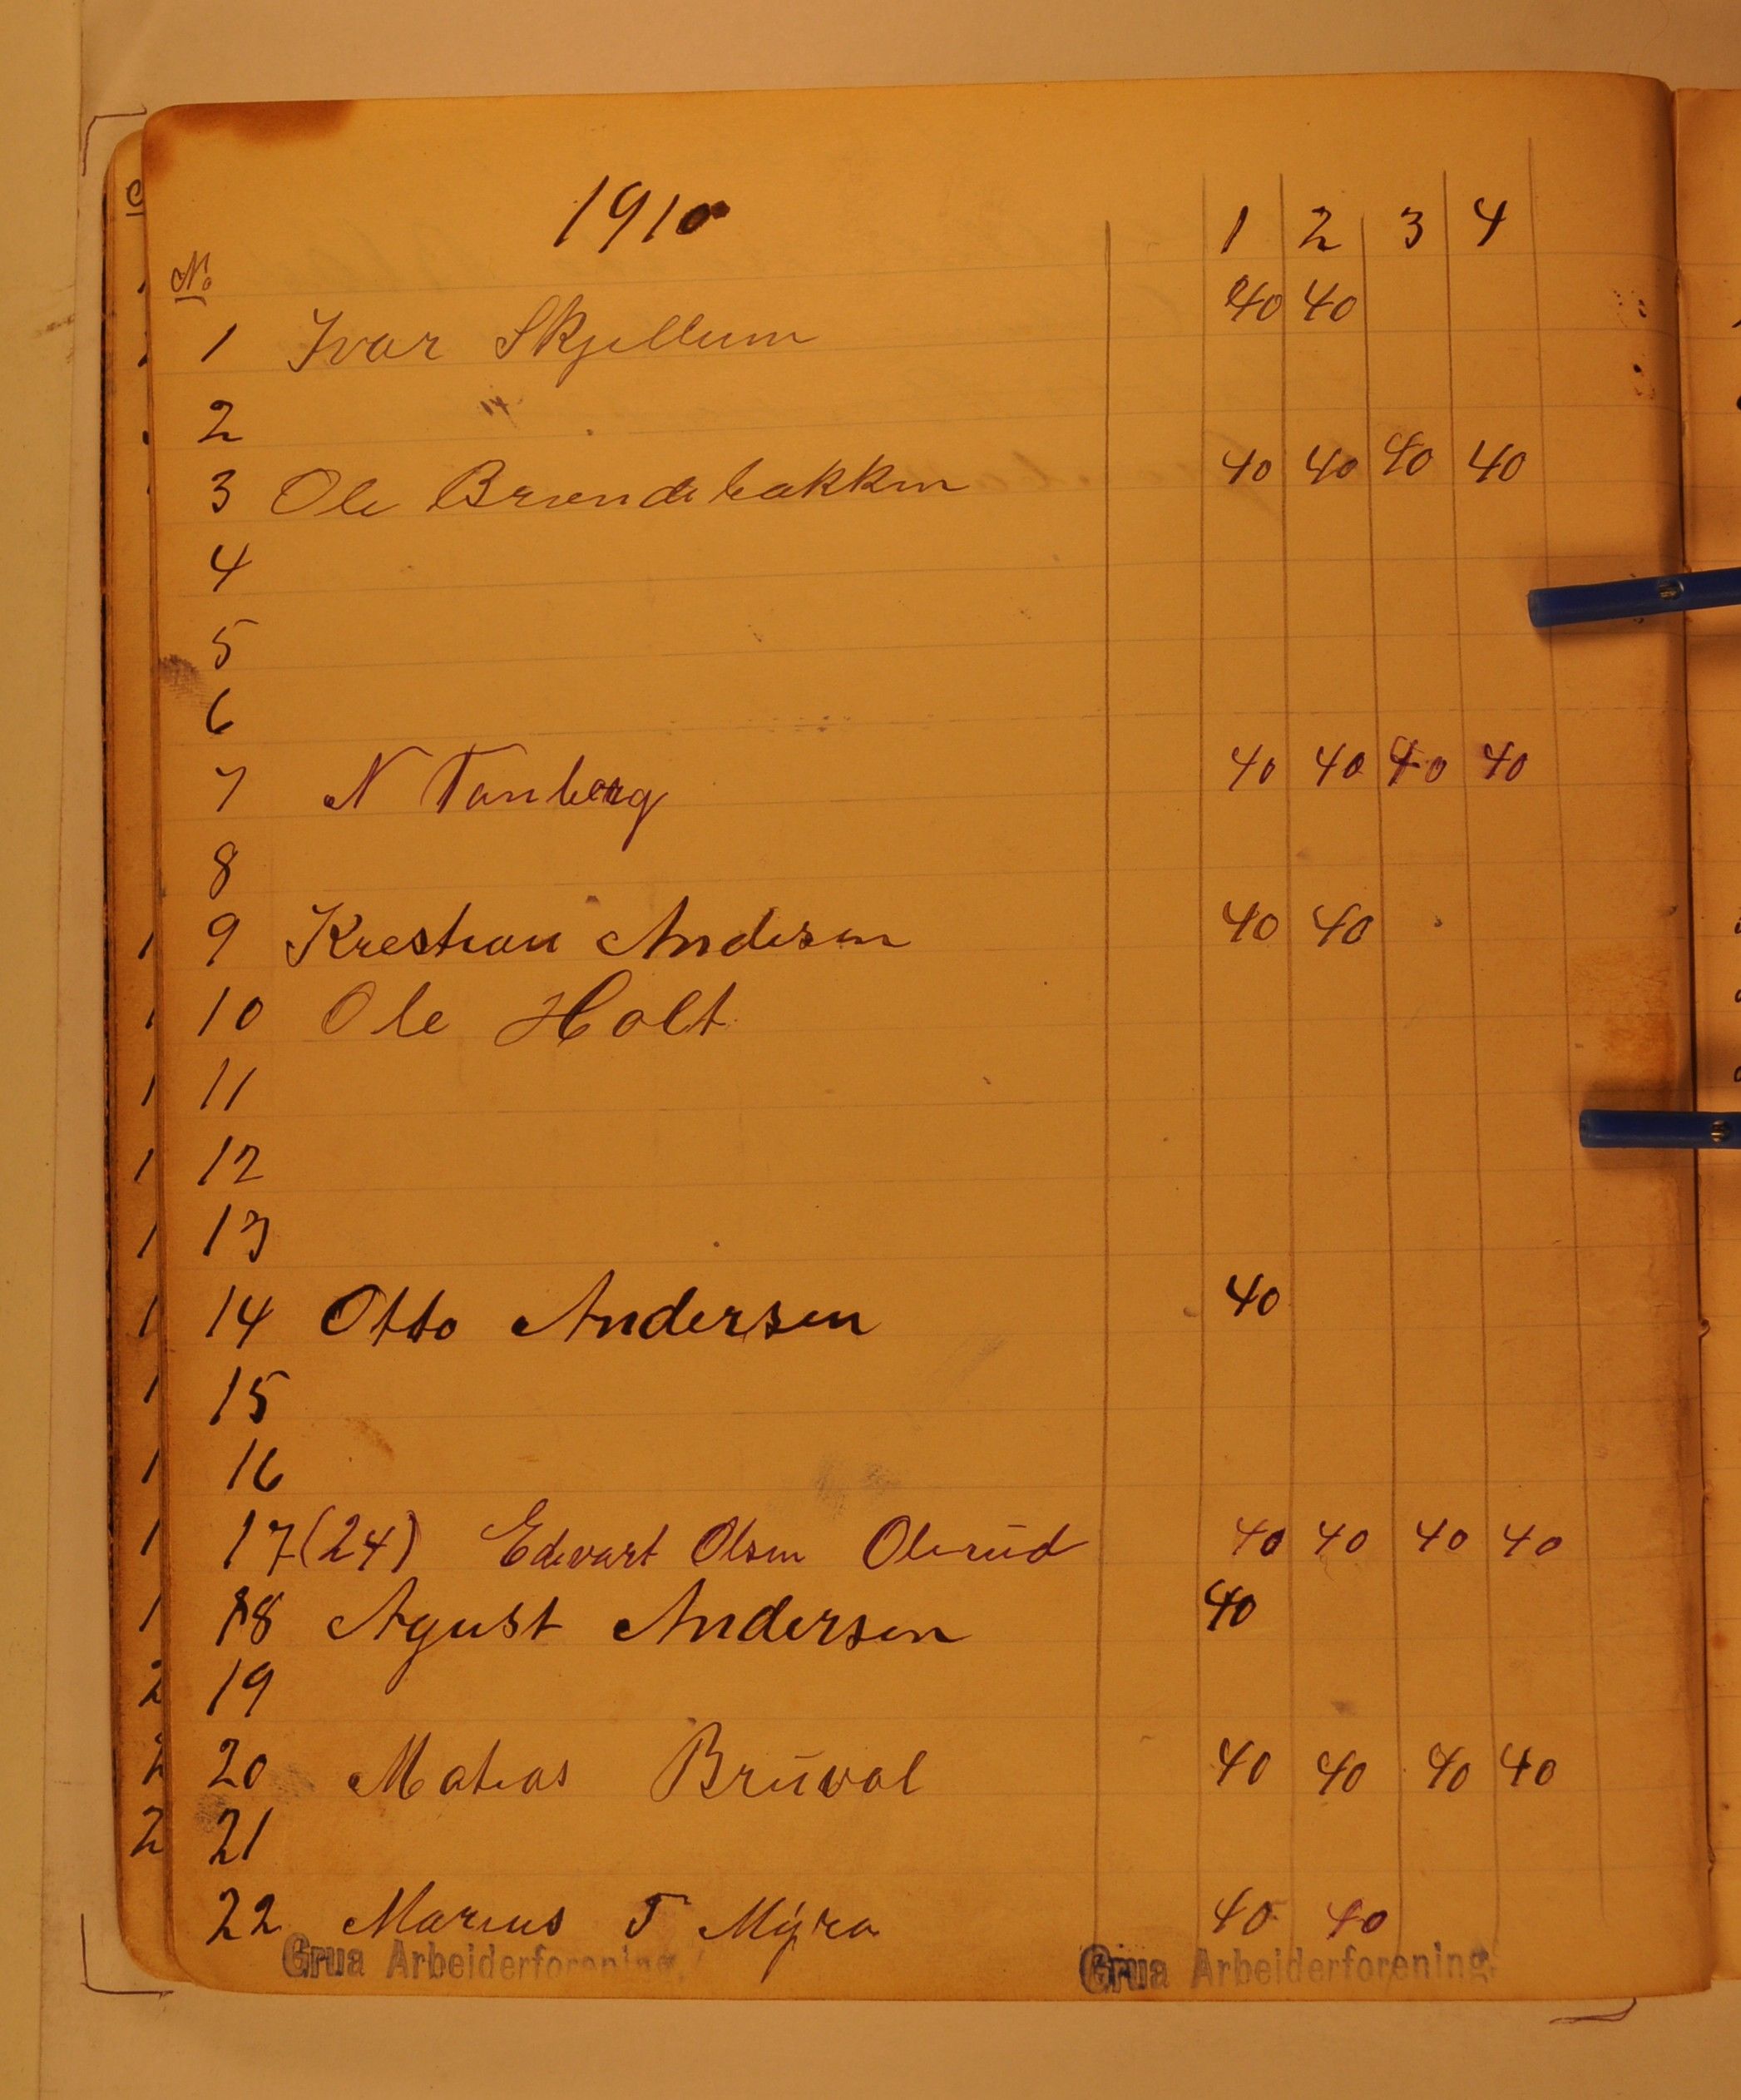 1910
1 2 3 4
No
1 Ivar Skjellum 40 40
2
3 Ole Brændebakken 40 40 40 40
4
5
6
7 N Tanberg 40 40 40 40
8
9 Krestian Andersen 40 40
10 Ole Holt
11
12
13
14 Otto Andersen 40
15
16
17 (24) Edevart Olsen Olerud 40 40 40 40
18 Agust Andersen 40
19
20 Matias Bruvol 40 40 40 40
21
22 Marius T Myra 40 40
Grua Arbeiderforening. Grua Arbeiderforening.